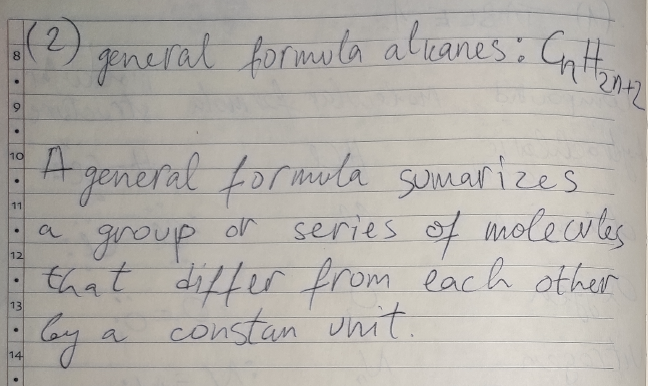 (2) general formula alkanes: CnH2n+2
A general formula sumarizes
a group or series of molecules
that differ from each other
by a constan unit.
8
9
10
11
12
13
14